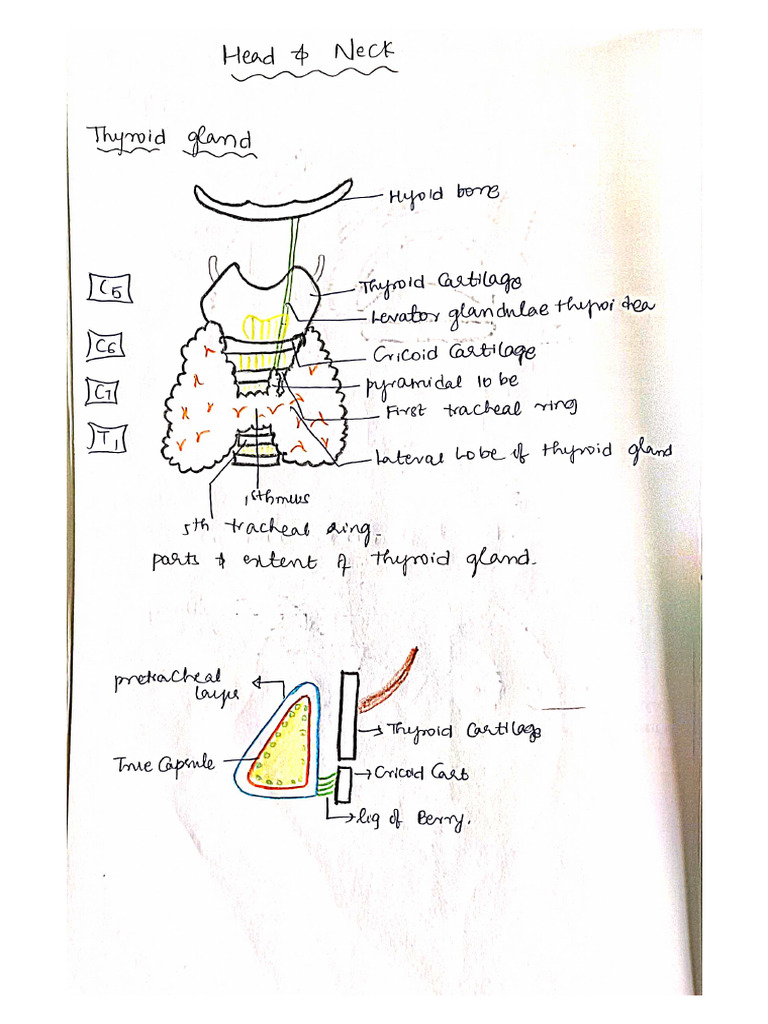 Head & Neck
Thyroid gland
Hyoid bone
C5
Thyroid Cartilage
Levator glandulae thyroidea
C6
Cricoid Cartilage
C7
pyramidal lobe
First tracheal ring
T1
Lateral Lobe of Thyroid gland
isthmus
5th tracheal ring.
parts & extent of Thyroid gland.
pretracheal
layer
Thyroid Cartilage
True Capsule
Cricoid Cart
lig of Berry.